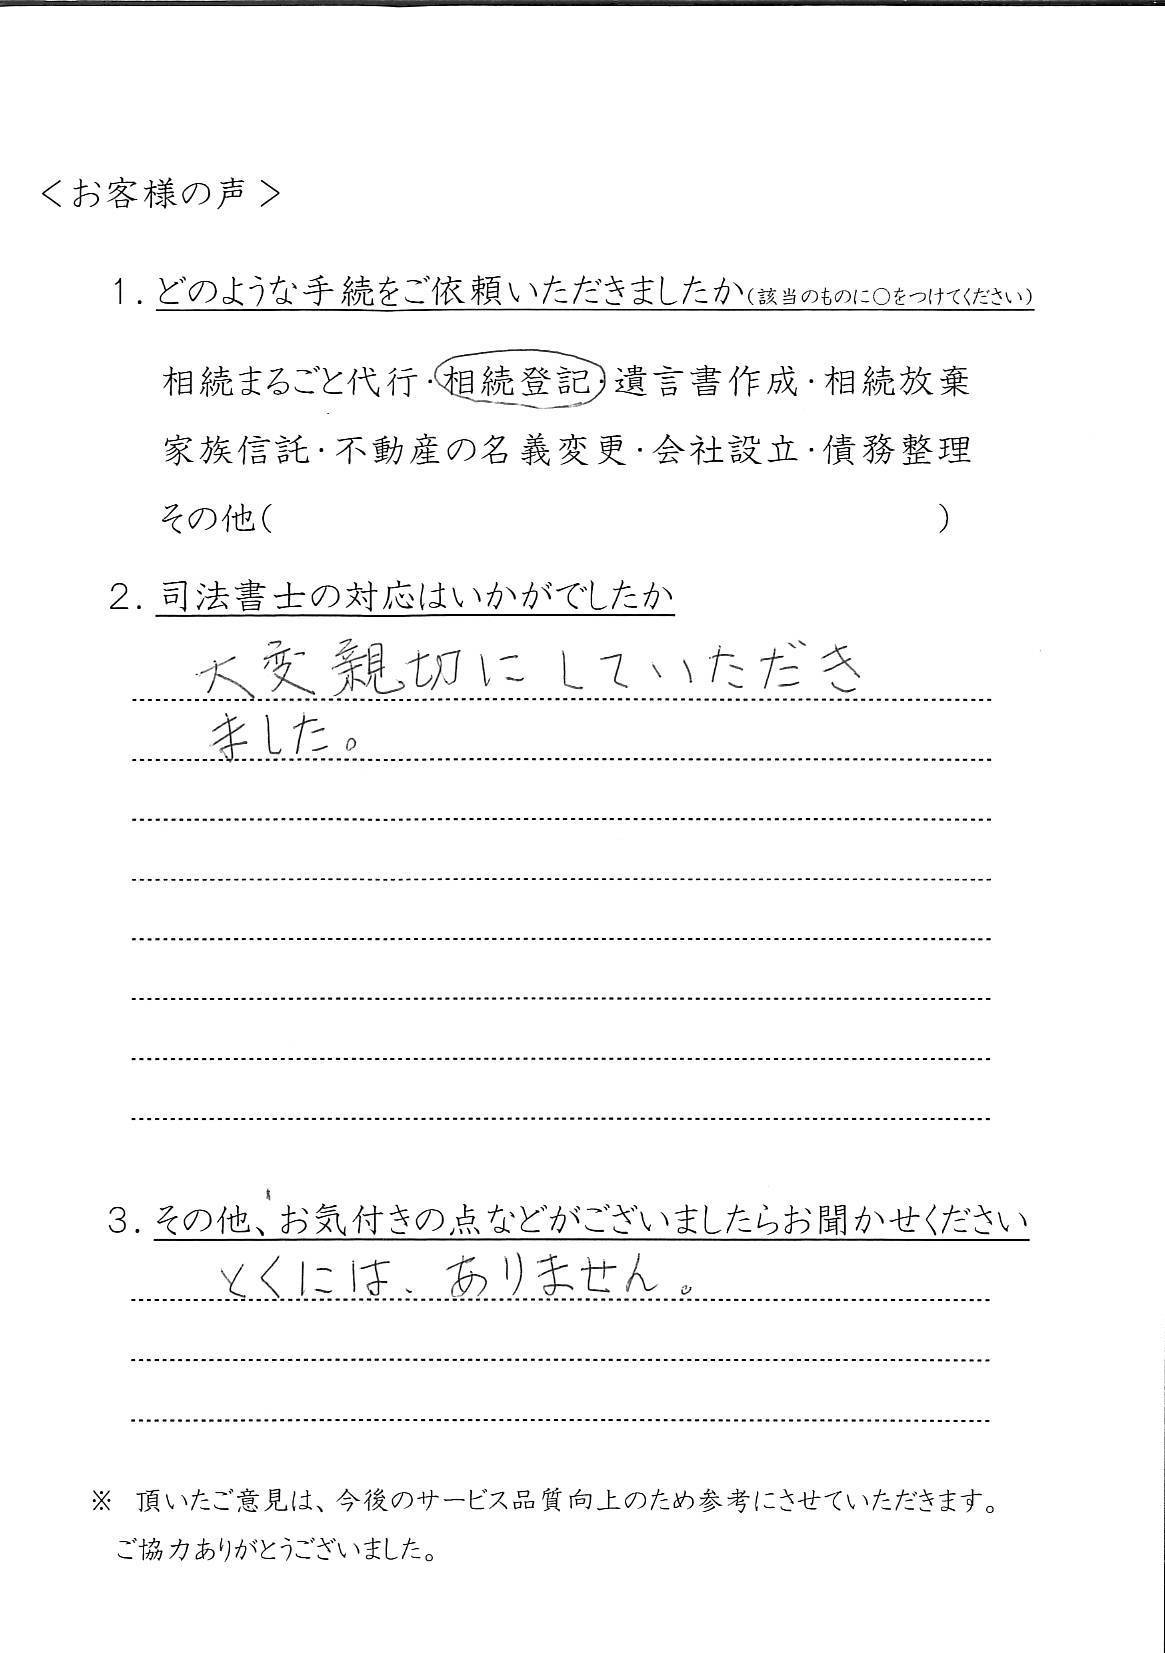 ＜お客様の声＞
1. どのような手続をご依頼いただきましたか(該当のものに○をつけてください)
相続まるごと代行・相続登記・遺言書作成・相続放棄
家族信託・不動産の名義変更・会社設立・債務整理
その他(　　　　　　　　　　　　　　　　　　)
2. 司法書士の対応はいかがでしたか
大変親切にしていただき
ました。
3. その他、お気付きの点などがございましたらお聞かせください
とくには、ありません。
※　頂いたご意見は、今後のサービス品質向上のため参考にさせていただきます。
ご協力ありがとうございました。